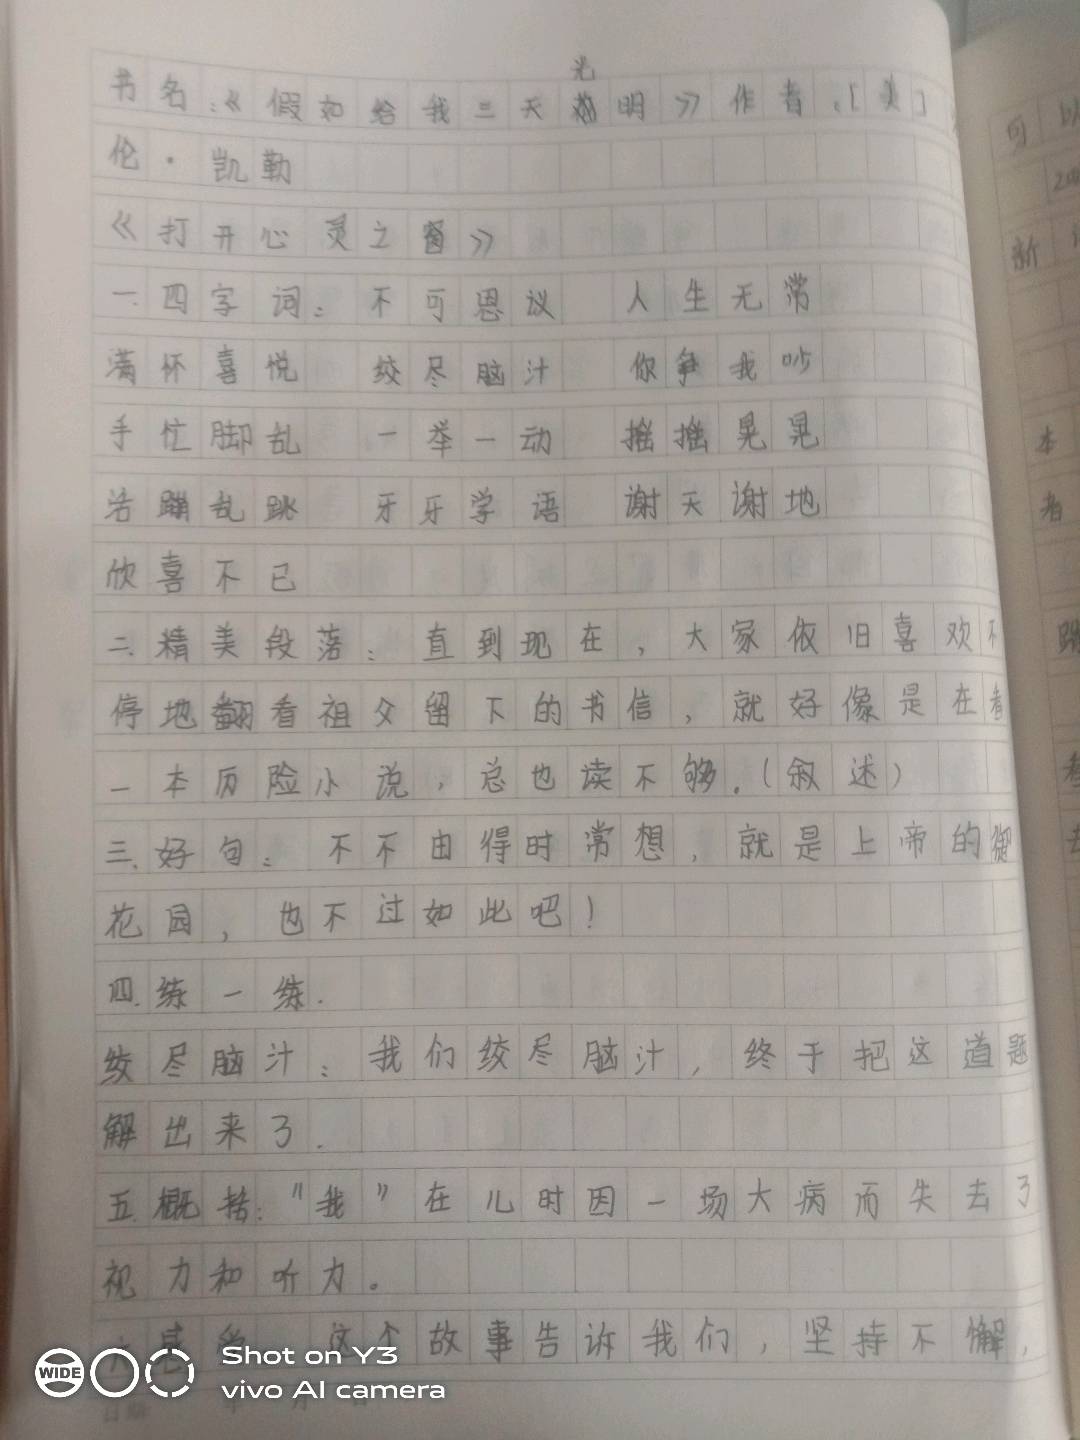 光
书名:《假如给我三天明》作者:[美]
伦·凯勒
《打开心灵之窗》
一.四字词: 不可思议 人生无常
满怀喜悦 绞尽脑汁 你争我吵
手忙脚乱 一举一动 摇摇晃晃
活蹦乱跳 牙牙学语 谢天谢地
欣喜不已
二.精美段落:直到现在,大家依旧喜欢不
停地翻看祖父留下的书信,就好像是在看
一本历险小说,总也读不够.(叙述)
三.好句: 不不由得时常想,就是上帝的御
花园,也不过如此吧!
四.练一练.
绞尽脑汁:我们绞尽脑汁,终于把这道题
解出来了.
五.概括:"我"在儿时因一场大病而失去了
视力和听力。
六感 这个故事告诉我们,坚持不懈,
WIDE
Shot on Y3
vivo AI camera
可
新
本
者